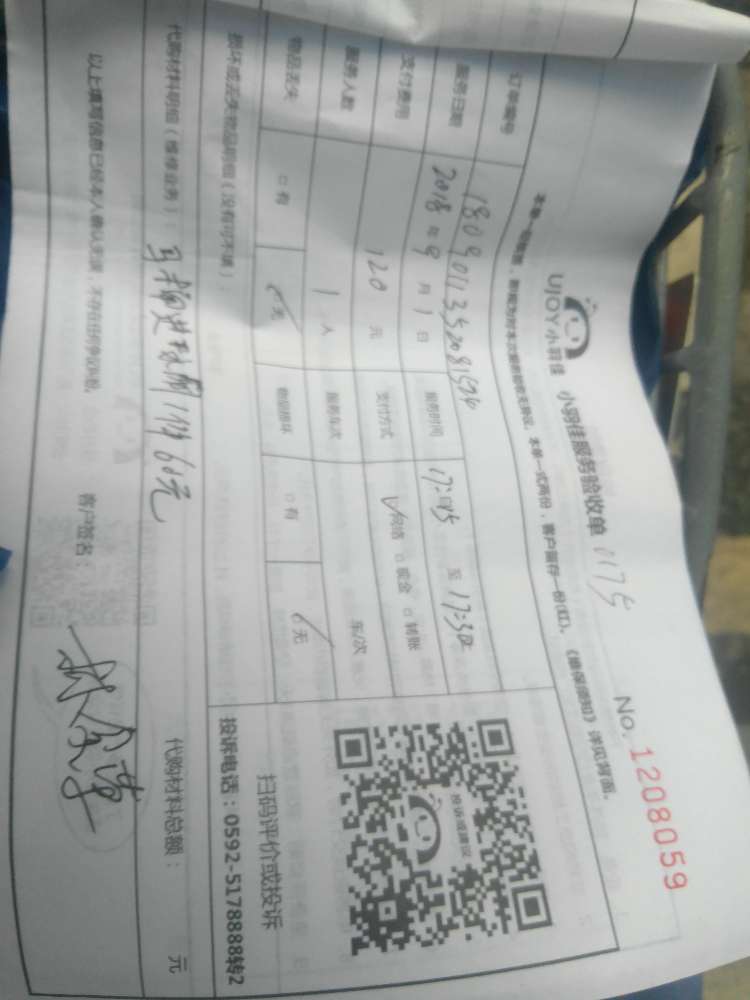 UJOY小羽佳
小羽佳服务验收单 0175
No. 1208059
本单一式两份,客户留存一份(红)。《维保须知》详见背面。
订单编号 180901135208
服务日期 2018 年 9 月 1 日 服务时间 至 17:30
支付费用 120 元 支付方式 ☑网络 □现金 □转账
服务人数 1 人 服务车次 车/次
物品丢失 □有 ☑无 物品损坏 □有 ☑无
损坏或丢失物品明细(没有可不填):
代购材料明细(维修业务): 1件60元 代购材料总额: 元
以上填写信息已经本人确认无误,不存在任何争议纠纷。 客户签名:
投诉或建议
扫码评价或投诉
投诉电话:0592-5178888转2